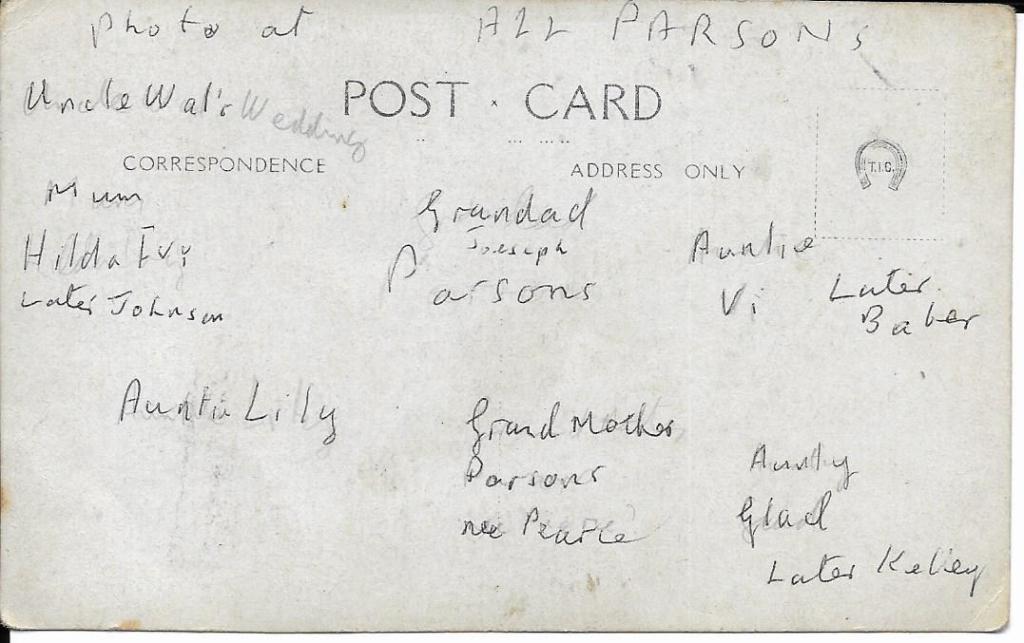 Photo at ALL PARSONS
Uncle Wal's Wedding
POST CARD
CORRESPONDENCE ADDRESS ONLY
T.I.C.
Mum
Hilda Ivy
Later Johnson
Grandad
Joeseph
Parsons
Auntie
Vi
Later
Baber
Auntie Lily
Grand Mother
Parsons
nee Pearce
Aunty
Glad
Later Kelley